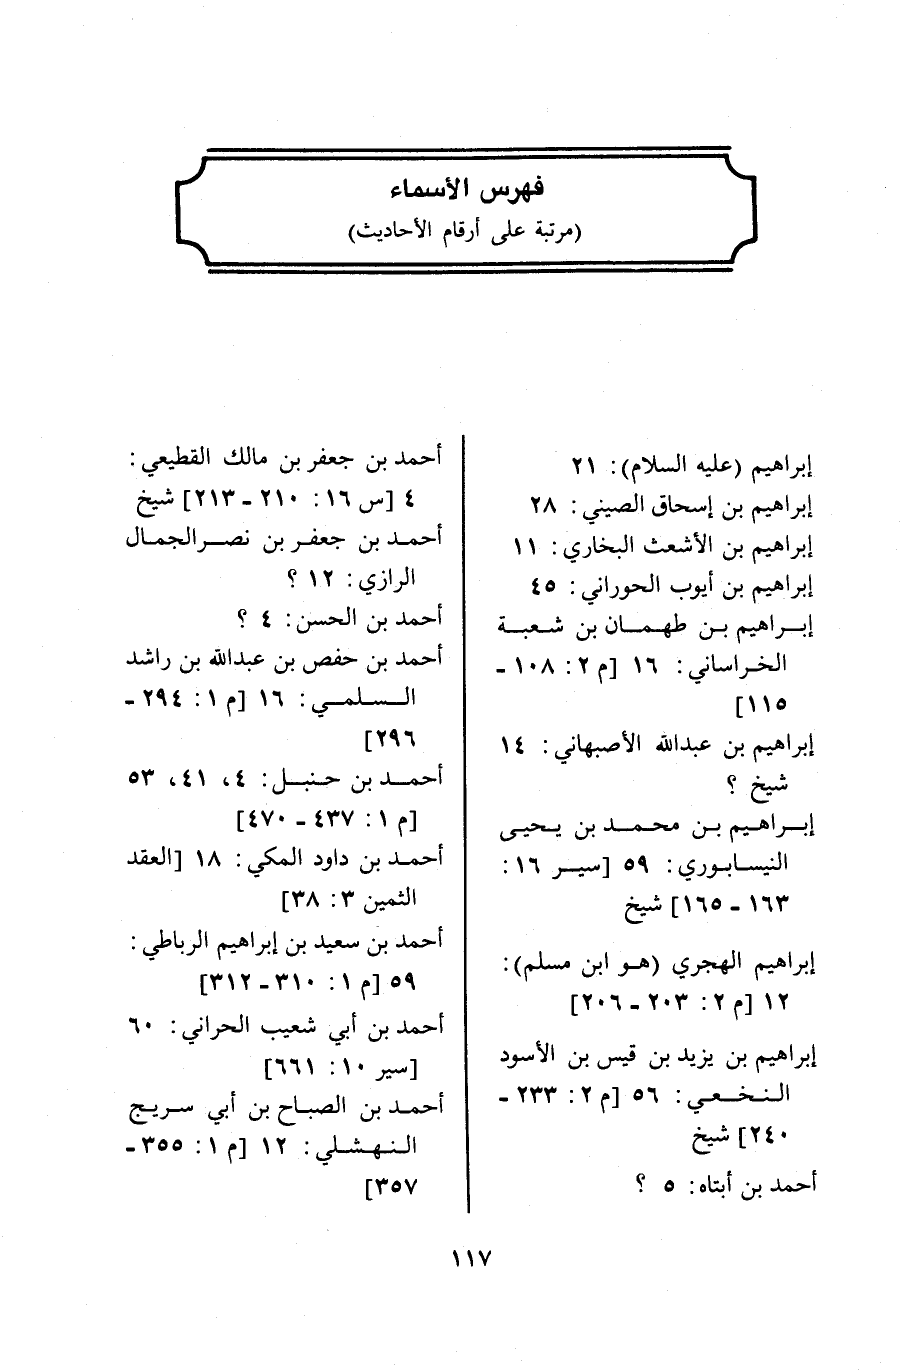 فهرس الأسماء
(مرتبة على أرقام الأحاديث)
إبراهيم (عليه السلام): ٢١
إبراهيم بن إسحاق الصيني: ٢٨
إبراهيم بن الأشعث البخاري: ١١
إبراهيم بن أيوب الحوراني: ٤٥
إبراهيم بن طهمان بن شعبة
الخراساني: ١٦ [م ٢: ١٠٨ -
١١٥]
إبراهيم بن عبدالله الأصبهاني: ١٤
شيخ ؟
إبراهيم بن محمد بن يحيى
النيسابوري: ٥٩ [سير ١٦:
١٦٣ - ١٦٥] شيخ
إبراهيم الهجري (هو ابن مسلم):
١٢ [م ٢: ٢٠٣ - ٢٠٦]
إبراهيم بن يزيد بن قيس بن الأسود
النخعي: ٥٦ [م ٢: ٢٣٣ -
٢٤٠] شيخ
أحمد بن أبتاه: ٥ ؟
أحمد بن جعفر بن مالك القطيعي:
٤ [س ١٦: ٢١٠ - ٢١٣] شيخ
أحمد بن جعفر بن نصر الجمال
الرازي: ١٢ ؟
أحمد بن الحسن: ٤ ؟
أحمد بن حفص بن عبدالله بن راشد
السلمي: ١٦ [م ١: ٢٩٤ -
٢٩٦]
أحمد بن حنبل: ٤، ٤١، ٥٣
[م ١: ٤٣٧ - ٤٧٠]
أحمد بن داود المكي: ١٨ [العقد
الثمين ٣: ٣٨]
أحمد بن سعيد بن إبراهيم الرباطي:
٥٩ [م ١: ٣١٠ - ٣١٢]
أحمد بن أبي شعيب الحراني: ٦٠
[سير ١٠: ٦٦١]
أحمد بن الصباح بن أبي سريج
النهشلي: ١٢ [م ١: ٣٥٥ -
٣٥٧]
١١٧